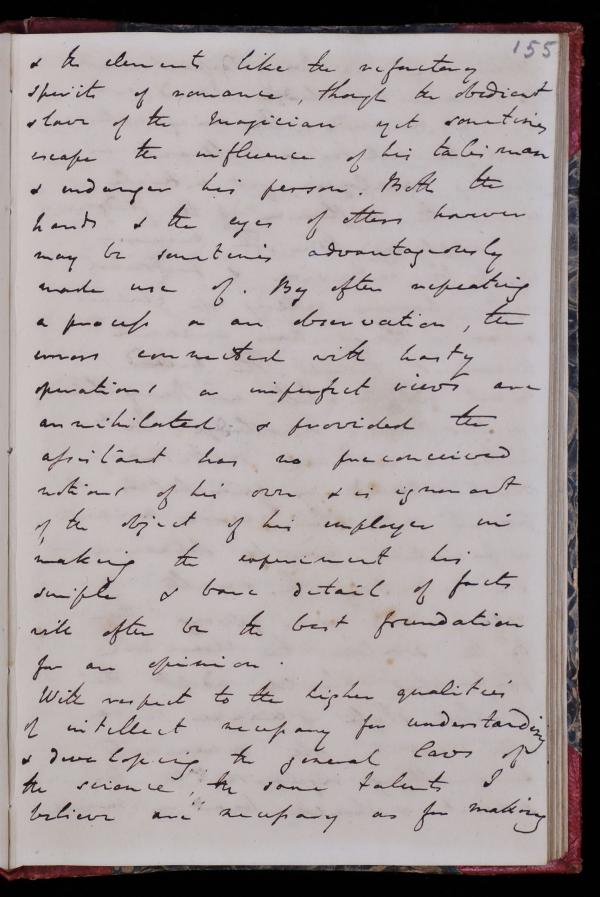 155
& the elements like the refractory
spirits of romance, though the obedient
slave of the Magician yet sometimes
escape the influence of his talisman
& endanger his person. Both the
hands & the eyes of others however
may be sometimes advantageously
made use of. By often repeating
a process or an observation, the
errors connected with hasty
operations or imperfect views are
annihilated. & provided the
assistant has no preconceived
notions of his own & is ignorant
of the object of his employer in
making the experiment his
simple & bare detail of facts
will often be the best foundation
for an opinion.
With respect to the higher qualities
of intellect necessary for understanding
& developing the general laws of
the science, the same talents I
believe are necessary as for making